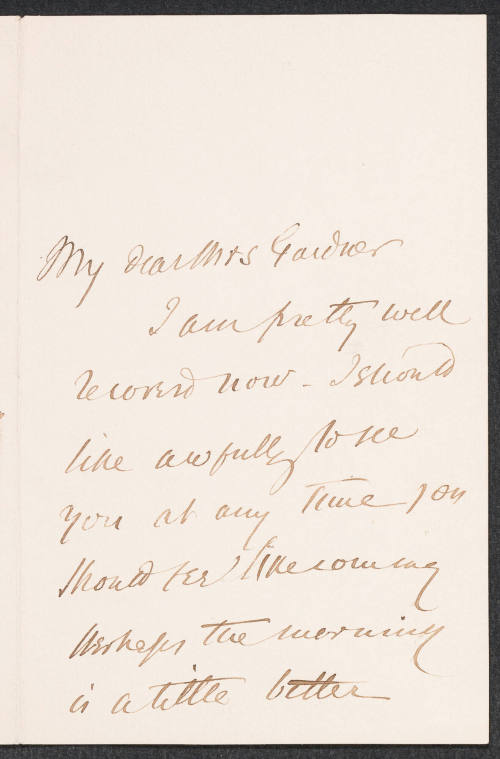 My dear Mrs Gardner
I am pretty well
recoverd now - I should
like awfully to see
you at any time you
should feel like coming
perhaps the morning
is a little better